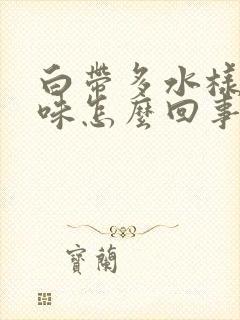 白帶多水樣
味怎麼回事
寶蘭